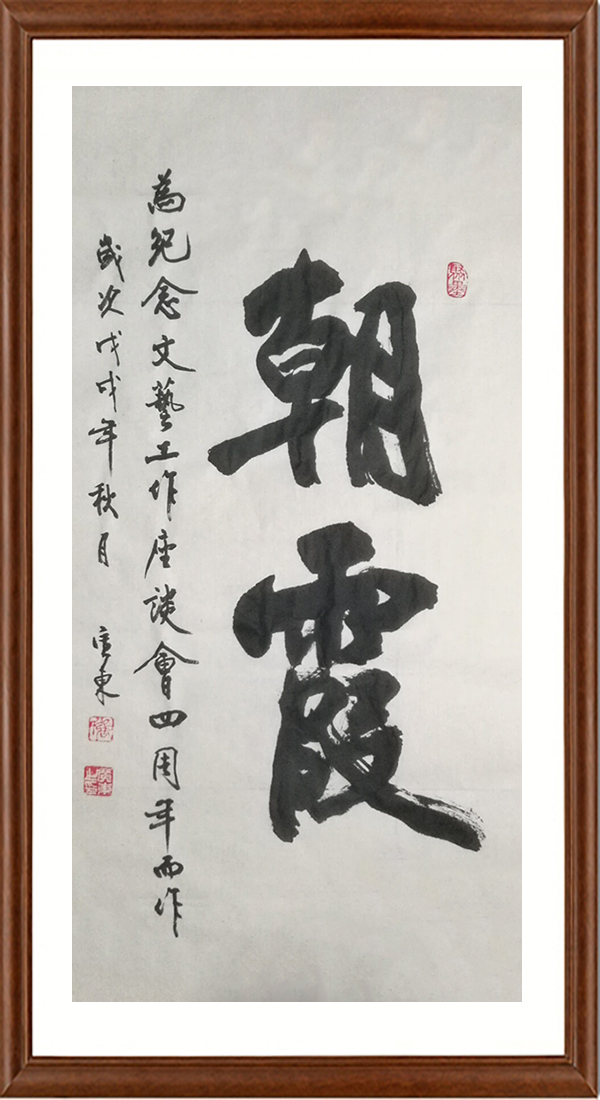 朝霞
為紀念文藝工作座談會四周年而作
歲次戊戌年秋月
東